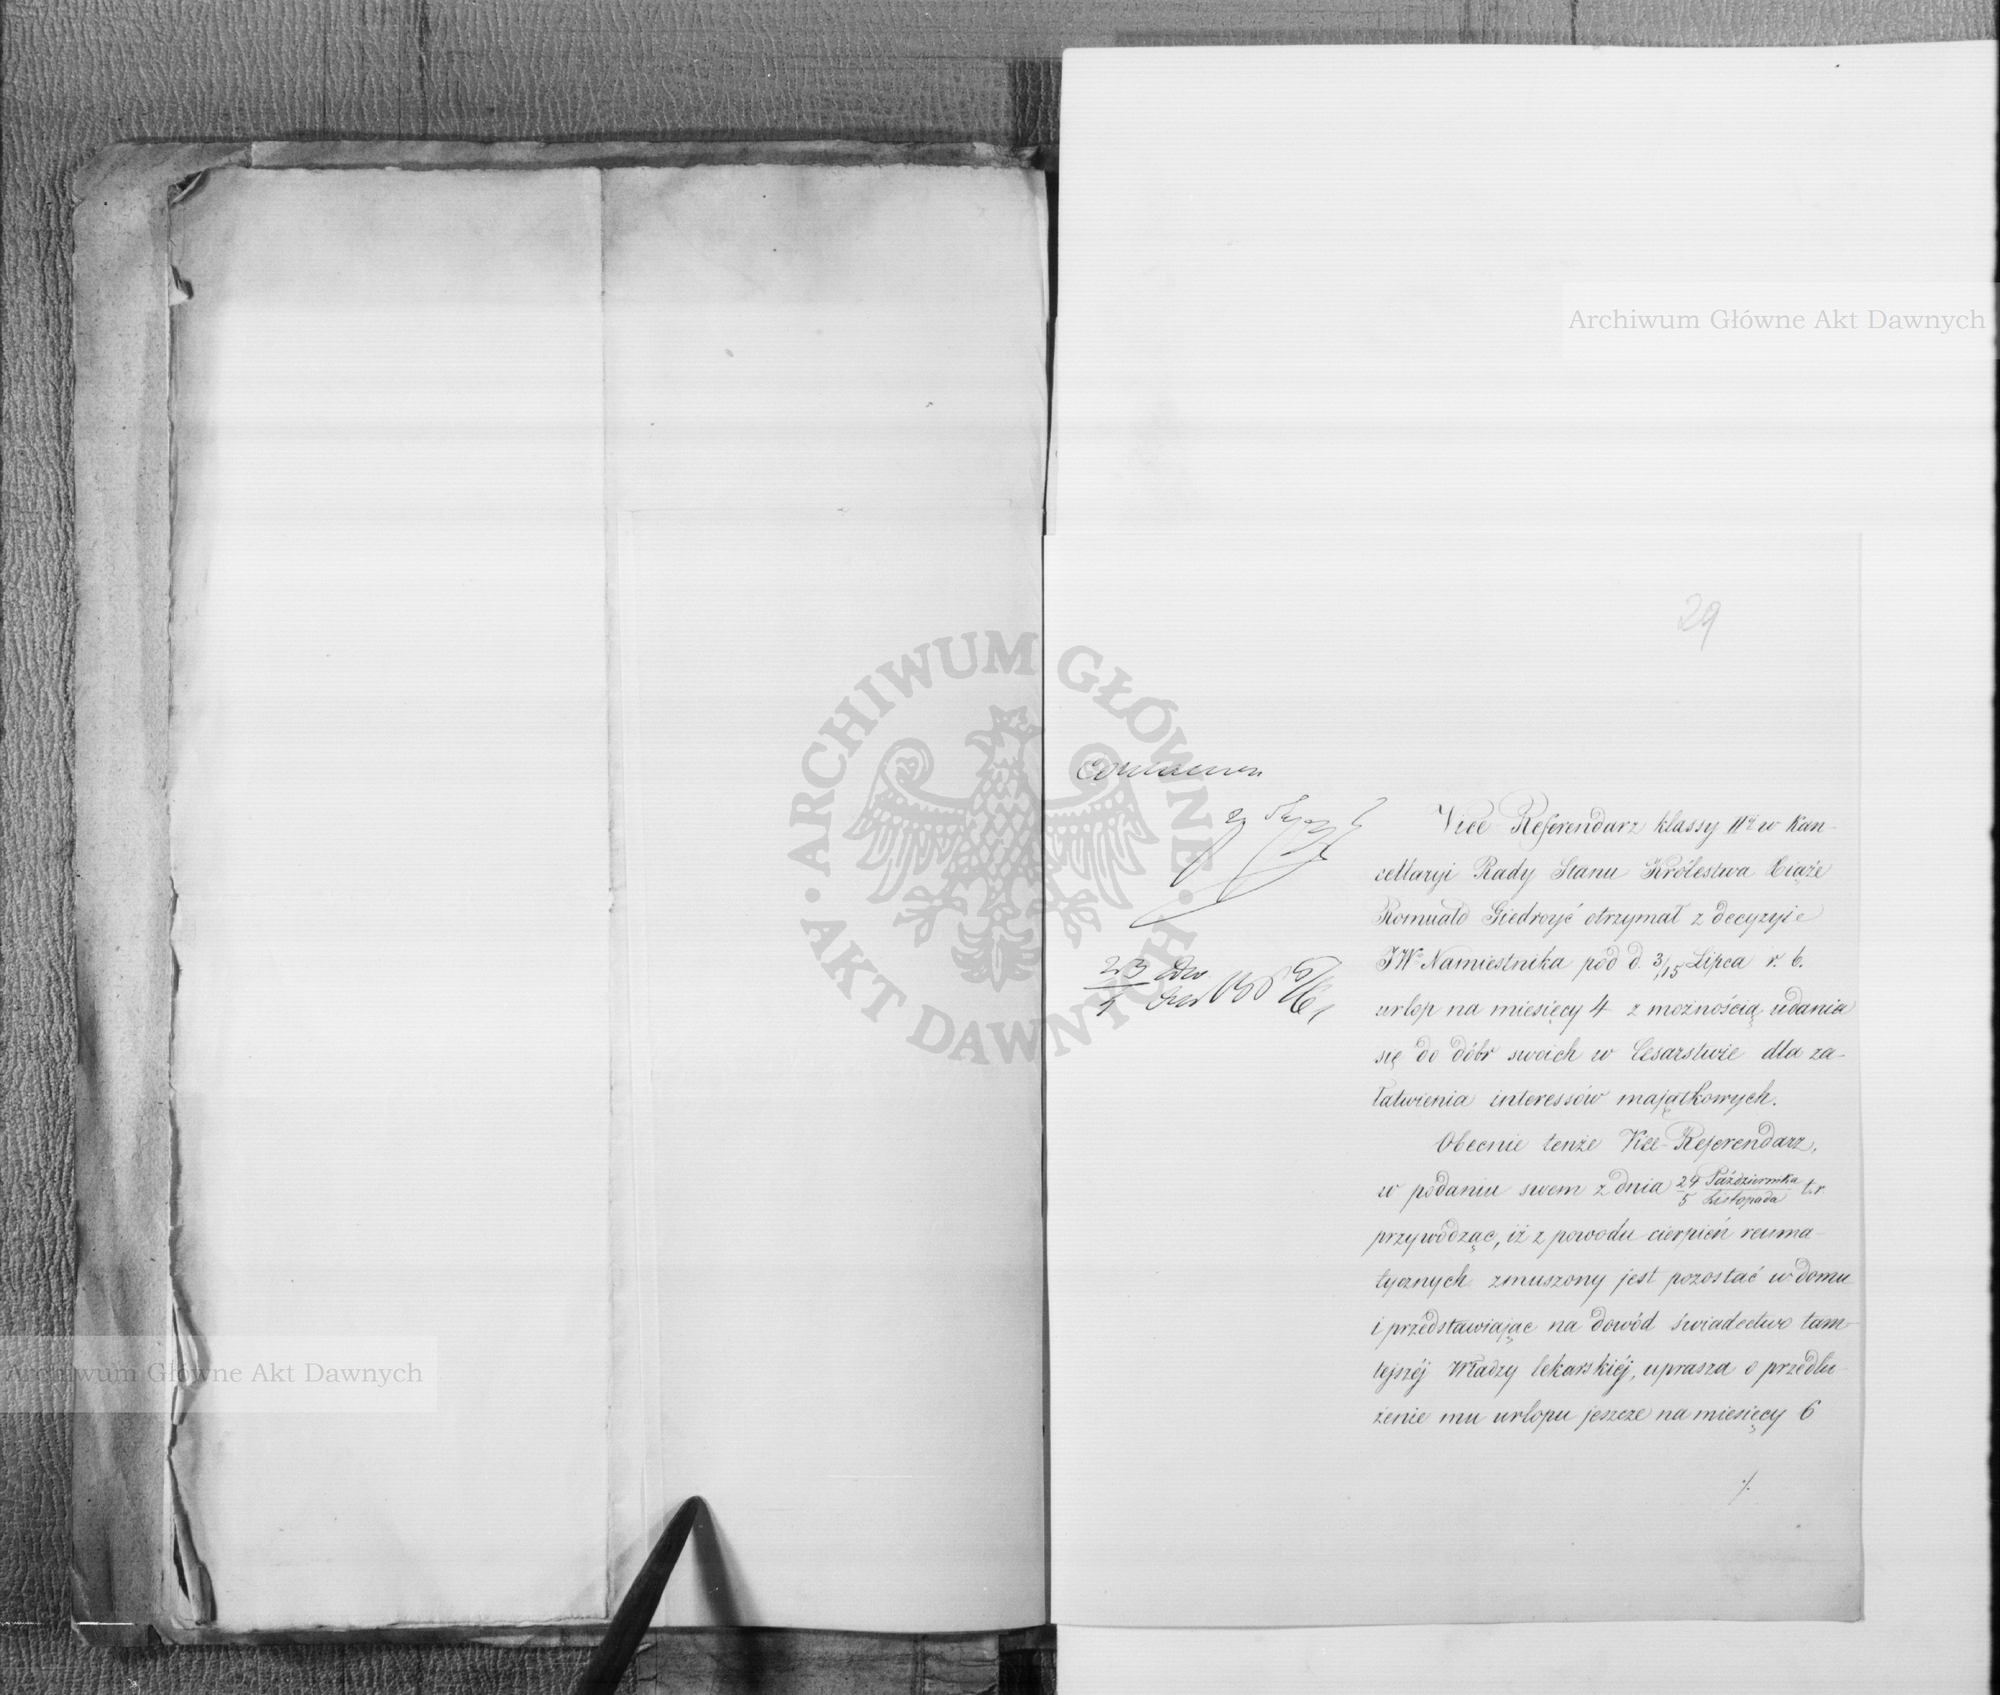 Archiwum Główne Akt Dawnych
29
ARCHIWUM GŁÓWNE
AKT DAWNYCH
Vice Referendarz klassy IIéj w Kan-
cellaryi Rady Stanu Królestwa Xiąże
Romuald Giedroyć otrzymał z decyzyi
JW Namiestnika pod d. 3/15 Lipca r. b.
urlop na miesięcy 4 z możnością udania
się do dóbr swoich w Cesarstwie dla za-
łatwienia interessów majątkowych.
Obecnie tenże Vice-Referendarz,
w podaniu swem z dnia 24 Października / 5 Listopada t. r.
przywodząc, iż z powodu cierpień reuma-
tycznych zmuszony jest pozostać w domu
i przedstawiając na dowód świadectwo tam-
tejszéj Władzy lekarskiéj, uprasza o przedłu-
żenie mu urlopu jeszcze na miesięcy 6
./.
Archiwum Główne Akt Dawnych